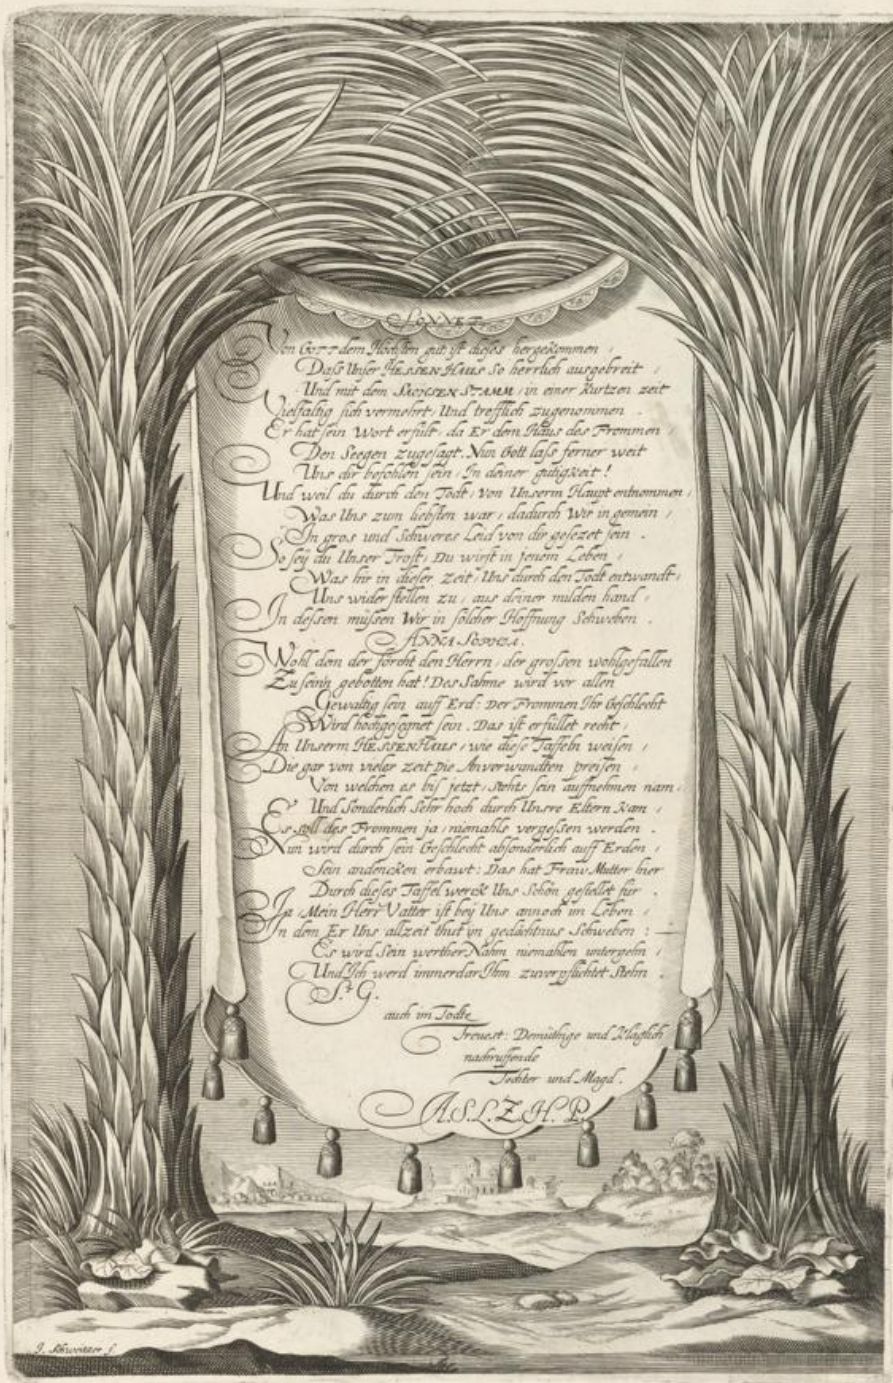 SONNET
Von GOTT dem Höchsten gut ist dieses hergekommen /
Dass Unser HESSEN HAUS so herrlich ausgebreit /
Und mit dem SACHSEN STAMM / in einer Kurtzen zeit
Vielfaltig sich vermehrt / Und trefflich zugenommen .
Er hat sein Wort erfült / da Er dem Haus des Frommen /
Den Seegen zugesagt. Nun Gott lass ferner weit
Uns dir befohlen sein / In deiner gutigkeit !
Und weil du durch den Todt / von Unserm Haupt entnommen /
Was Uns zum liebsten war / dadurch Wir in gemein /
In gros und Schweres Leid von dir gesezet sein .
So sey du Unser Trost / Du wirst in jenem Leben /
Was hir in dieser zeit / Uns durch den Todt entwandt /
Uns wider stellen zu / aus deiner milden hand /
In dessen müssen Wir in solcher Hoffnung Schweben .
ANNA SOPHIA.
Wohl dem der förcht den Herrn / der grossen wohlgefallen
Zu seinn gebotten hat ! Des Sahme wird vor allen
Gewaltig sein auff Erd : Der Frommen Ihr Geschlecht
Wird hochgesegnet sein . Das ist erfüllet recht /
An Unserm HESSEN HAUS / wie diese Taffeln weisen /
Die gar von vieler zeit Die Anverwandten preisen /
Von welchen es bis jetzt / stehts sein auffnehmen nam /
Und Sonderlich Sehr hoch durch Unsre Eltern Kam /
Es soll des Frommen ja / niemahls vergessen werden .
Nun wird durch sein Geschlecht absonderlich auff Erden /
Sein andencken erbawt : Das hat Fraw Mutter hier
Durch dieses Taffel werck Uns Schön gestellet für .
Ja / Mein Herr Vatter ist bey Uns annoch im Leben /
In dem Er Uns allzeit thut in gedächtnus Schweben :
Es wird Sein werther Nahm niemahlen untergehn /
Und Ich werd immerdar Ihm zuverpflichtet Stehn .
S.t G.
auch im Todte
Treuest : Demüthige und Kläglich
nachruffende
Tochter und Magd .
A.S.L.Z.H.P.
J. Schweizer f.